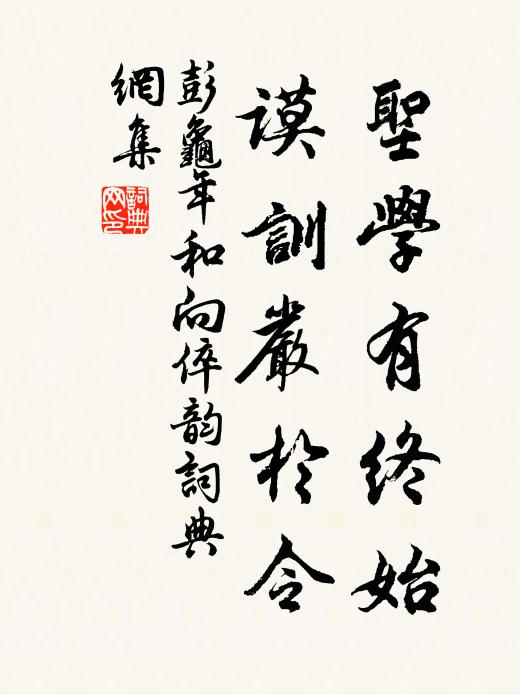 聖學有終始
謨訓嚴於令
彭龜年和向倅韵詞典
網集
詞典
网印